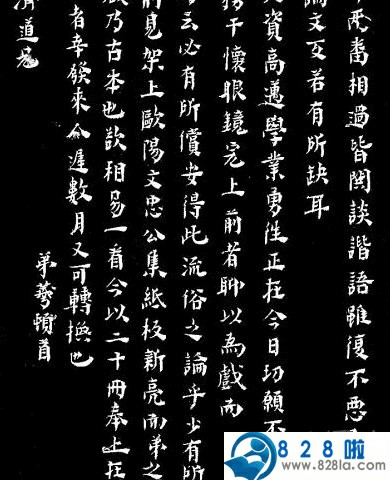 兩番相過皆閑談諧語雖復不惡
論文反若有所缺耳
資高邁學業勇徃正在今日切願不
務干懷眼鏡完上前者聊以為戲而
云必有所償安得此流俗之論乎少有所
前見架上歐陽文忠公集紙板新亮而弟之
乃古本也欲相易一看今以二十冊奉上在
者幸發來今遲數月又可轉換也
弟鼐頓首
濟道兄
828啦
www.828la.com